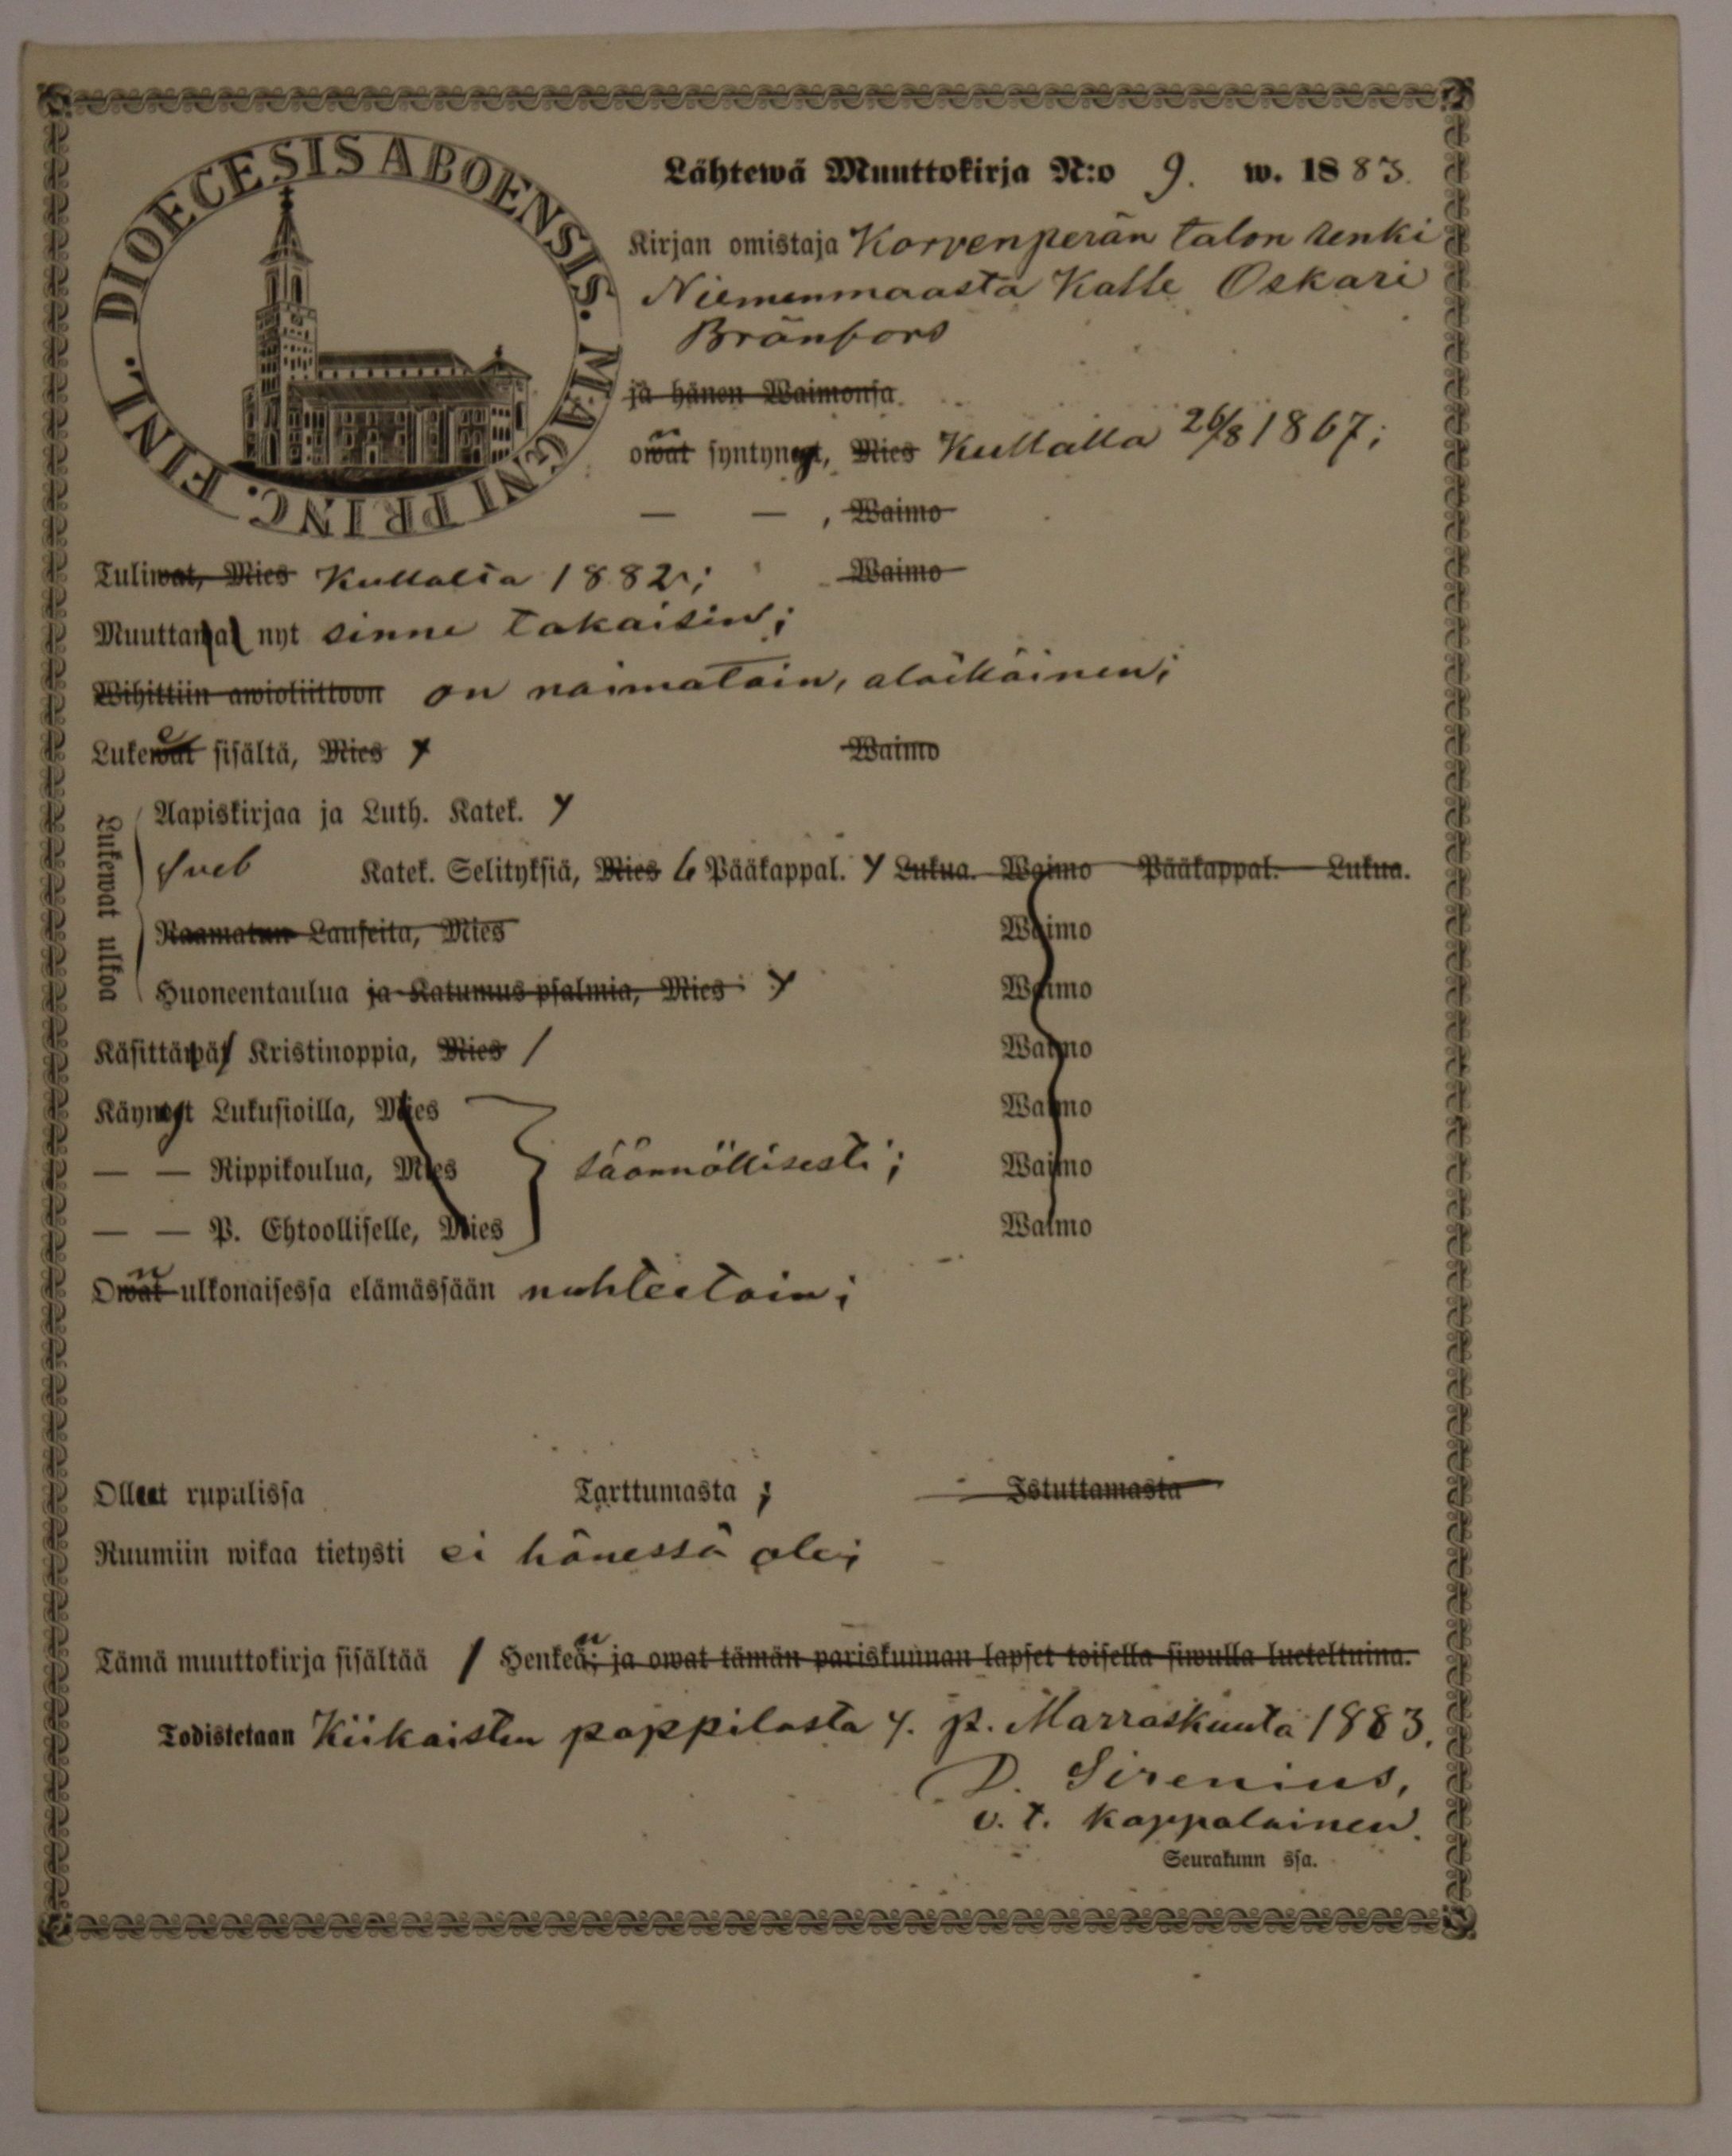 DIOECESIS ABOENSIS. MAGNI PRINC. FINL.
Lähtewä Muuttokirja N:o 9. w. 1883.
Kirjan omistaja Korvenperän talon renki
Niemenmaasta Kalle Oskari
Bränfors
ja hänen Waimonsa
owat syntynyt, Mies Kullalla 26/8 1867;
— — , Waimo
Tuliwat, Mies Kullalta 1882; Waimo
Muuttawat nyt sinne takaisin;
Wihittiin awioliittoon on naimatoin, aläikäinen;
Lukewat sisältä, Mies y Waimo
Lukewat ulkoa
Aapiskirjaa ja Luth. Katek. y
Sveb Katek. Selityksiä, Mies 6 Pääkappal. y Lukua. Waimo Pääkappal. Lukua.
Raamatun Lauseita, Mies Waimo
Huoneentaulua ja Katumus psalmia, Mies y Waimo
Käsittäwät Kristinoppia, Mies / Waimo
Käynyt Lukusioilla, Mies Waimo
— — Rippikoulua, Mies säännöllisesti; Waimo
— — P. Ehtoolliselle, Mies Waimo
Owat ulkonaisessa elämässään nuhteetoin;
Olleet rupulissa Tarttumasta ; Istuttamasta
Ruumiin wikaa tietysti ei hänessä ole;
Tämä muuttokirja sisältää 1 Henkeä; ja owat tämän pariskunnan lapset toisella siwulla lueteltuina.
Todistetaan Kiikaisten pappilasta 4. p. Marraskuuta 1883.
D. Sirenius,
v. t. kappalainen.
Seurakunn ssa.